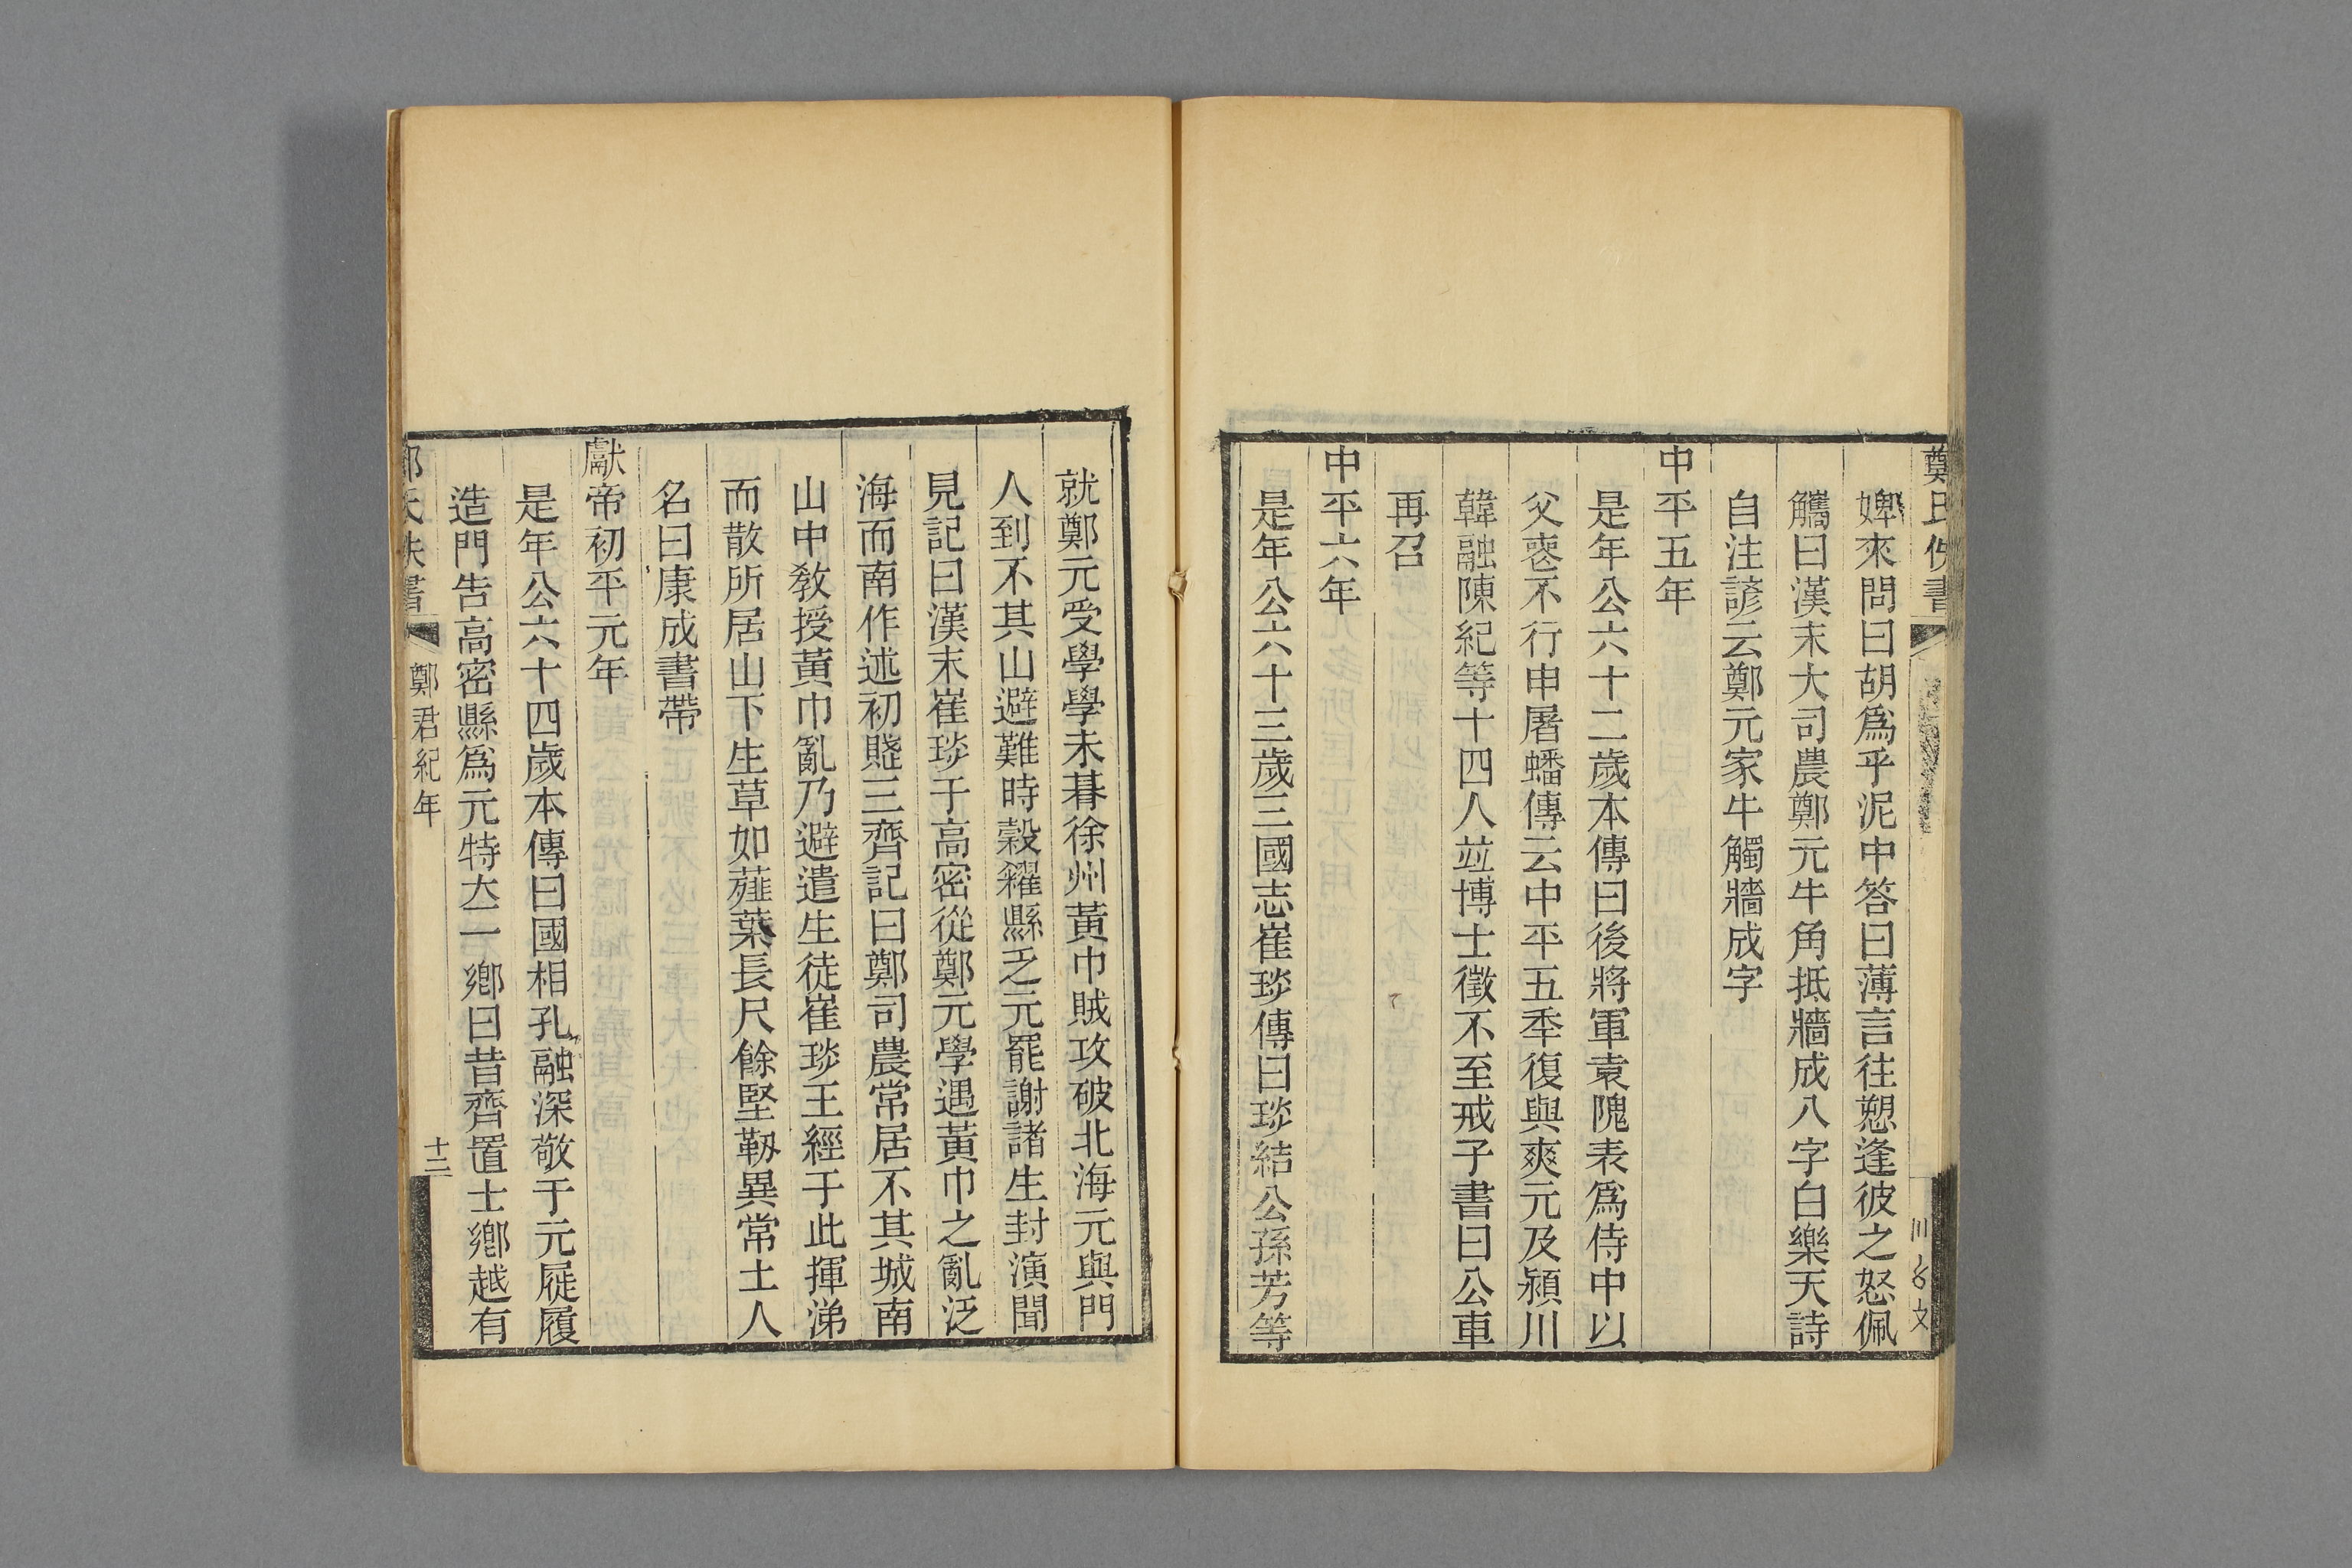 鄭氏佚書
婢來問曰胡爲乎泥中答曰薄言往愬逢彼之怒佩
觿曰漢末大司農鄭元牛角抵牆成八字白樂天詩
自注諺云鄭元家牛觸牆成字
中平五年
是年公六十二歲本傳曰後將軍袁隗表爲侍中以
父喪不行申屠蟠傳云中平五年復與爽元及潁川
韓融陳紀等十四人竝博士徵不至戒子書曰公車
再召
中平六年
是年公六十三歲三國志崔琰傳曰琰結公孫芳等
就鄭元受學學未朞徐州黃巾賊攻破北海元與門
人到不其山避難時穀糴縣乏元罷謝諸生封演聞
見記曰漢末崔琰于高密從鄭元學遇黃巾之亂泛
海而南作述初賦三齊記曰鄭司農常居不其城南
山中敎授黃巾亂乃避遣生徒崔琰王經于此揮涕
而散所居山下生草如薤葉長尺餘堅韌異常土人
名曰康成書帶
獻帝初平元年
是年公六十四歲本傳曰國相孔融深敬于元屣履
造門告高密縣爲元特立一鄉曰昔齊置士鄉越有
鄭氏佚書
鄭君紀年
十二